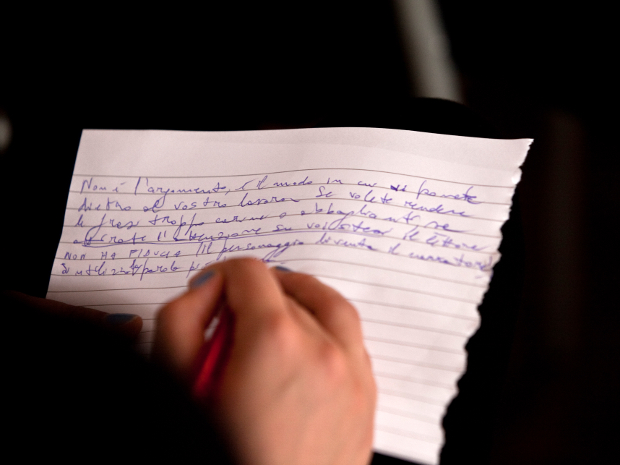 Non è l'argomento, è il modo in cui vi ponete
dietro al vostro lavoro. Se volete rendere
le frasi troppo carine o abbaglianti se
attirate l'attenzione su voi stessi il lettore
NON HA FIDUCIA (Il personaggio diventa il narratore)
Si utilizza parola